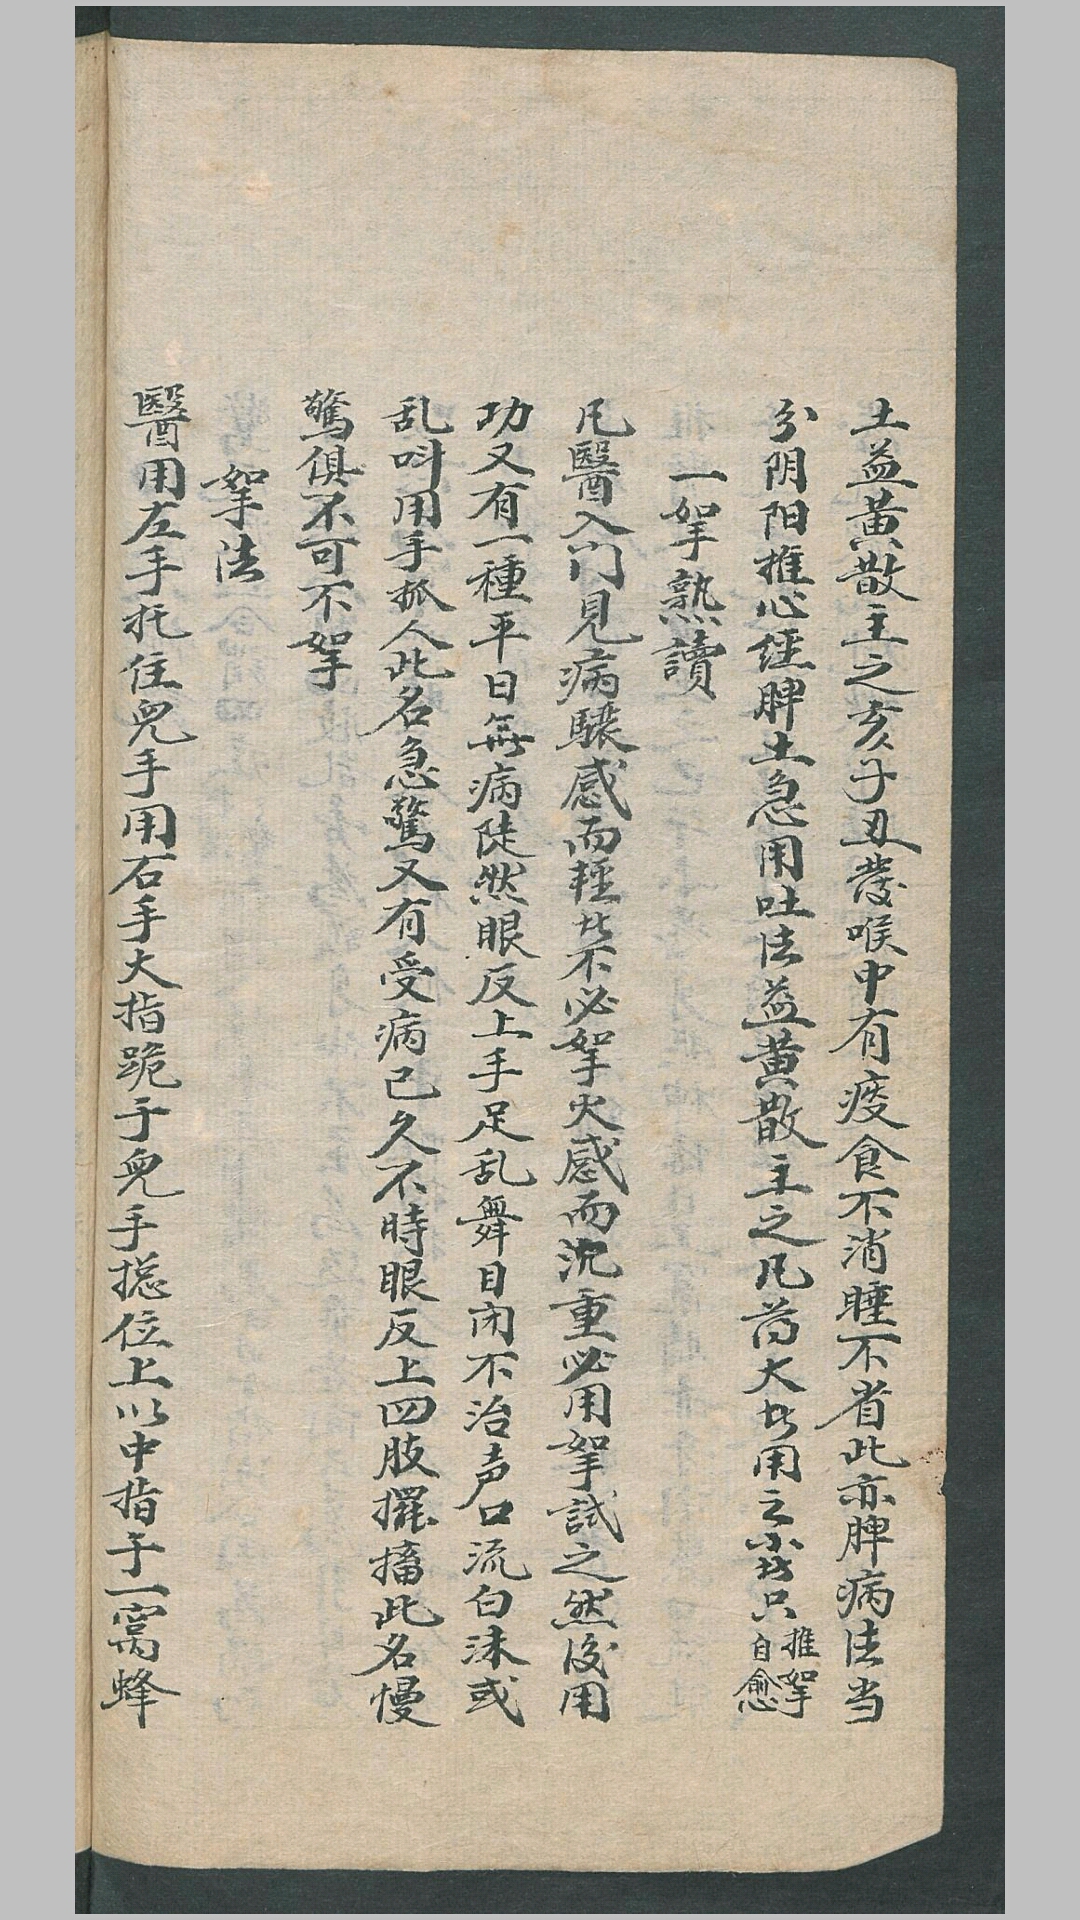 土益黄散主之亥子丑發喉中有痰食不消睡不省此亦脾病法当
分阴阳推心經脾土急用吐法益黄散主之凡葯大者用之小者只推拏自愈
一拏熟讀
凡醫入门見病驟感而輕者不必拏火感而沉重必用拏試之然後用
功又有一種平日無病陡然眼反上手足乱舞目闭不治声口流白沫或
乱呌用手抓人此名急驚又有受病已久不時眼反上四肢擺搐此名慢
驚俱不可不拏
拏法
醫用左手托住兒手用石手大指跪于兒手揔位上以中指于一窩蜂